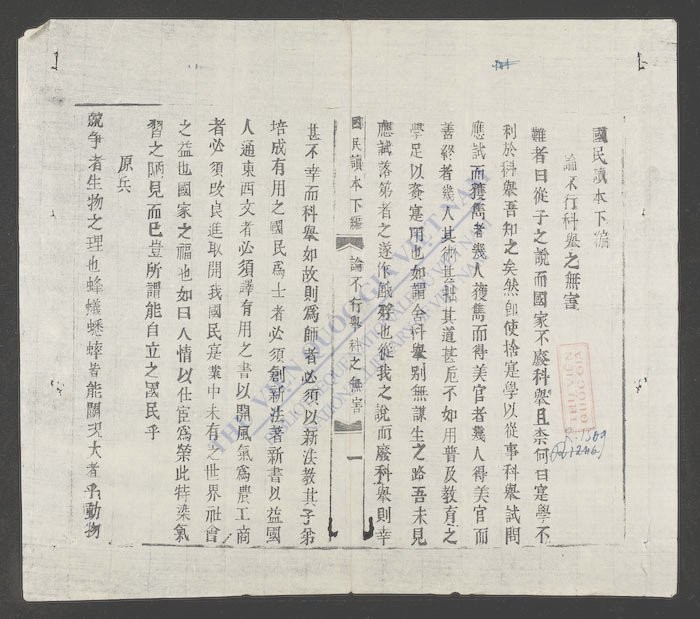 國民讀本下編
論不行科舉之無害
難者曰從子之說而國家不廢科舉且柰何曰寔學不
利於科舉吾知之矣然卽使捨寔學以從事科舉試問
應試而獲雋者幾人獲雋而得美官者幾人得美官而
善終者幾人其術甚拙其道甚危不如用普及教育之
學足以資寔用也如謂舍科舉別無謀生之路吾未見
應試落第者之遂作餓殍也從我之說而廢科舉則幸
國民讀本下編 論不行舉科之無害 一
甚不幸而科舉如故則爲師者必須以新法教其子弟
培成有用之國民爲士者必須創新法著新書以益國
人通東西文者必須譯有用之書以開風氣爲農工商
者必須改良進取開我國民寔業中未有之世界社會
之益也國家之福也如曰人情以仕宦爲榮此特染氣
習之陋見而已豈所謂能自立之國民乎
原兵
競争者生物之理也蜂蟻蟋蟀皆能鬪况大者乎動物
THƯ VIỆN QUỐC GIA VIỆT NAM
R. 1569